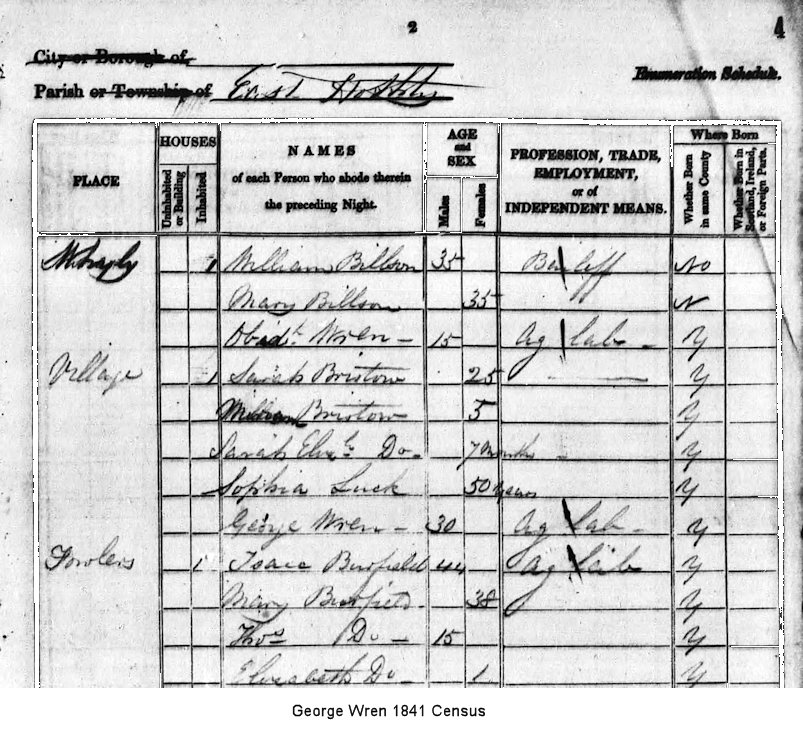 2
4
City or Borough of
Parish or Township of East Hothly
Enumeration Schedule.
PLACE
HOUSES
Uninhabited or Building
Inhabited
NAMES
of each Person who abode therein
the preceding Night.
AGE
and
SEX
Males
Females
PROFESSION, TRADE,
EMPLOYMENT,
or of
INDEPENDENT MEANS.
Where Born
Whether Born in same County
Whether Born in Scotland, Ireland, or Foreign Parts.
1 William Billson 35 Bailiff No
Mary Billson 35 N
Obadh Wren 15 Ag Lab Y
Village 1 Sarah Bristow 25 Y
William Bristow 5 Y
Sarah Elizth Do 7 Months Y
Sophia Luck 50 Years Y
George Wren 30 Ag Lab Y
Fowlers 1 Isaac Burfield 44 Ag Lab Y
Mary Burfield 38 Y
Thos Do 15 Y
Elizabeth Do 1 Y
George Wren 1841 Census